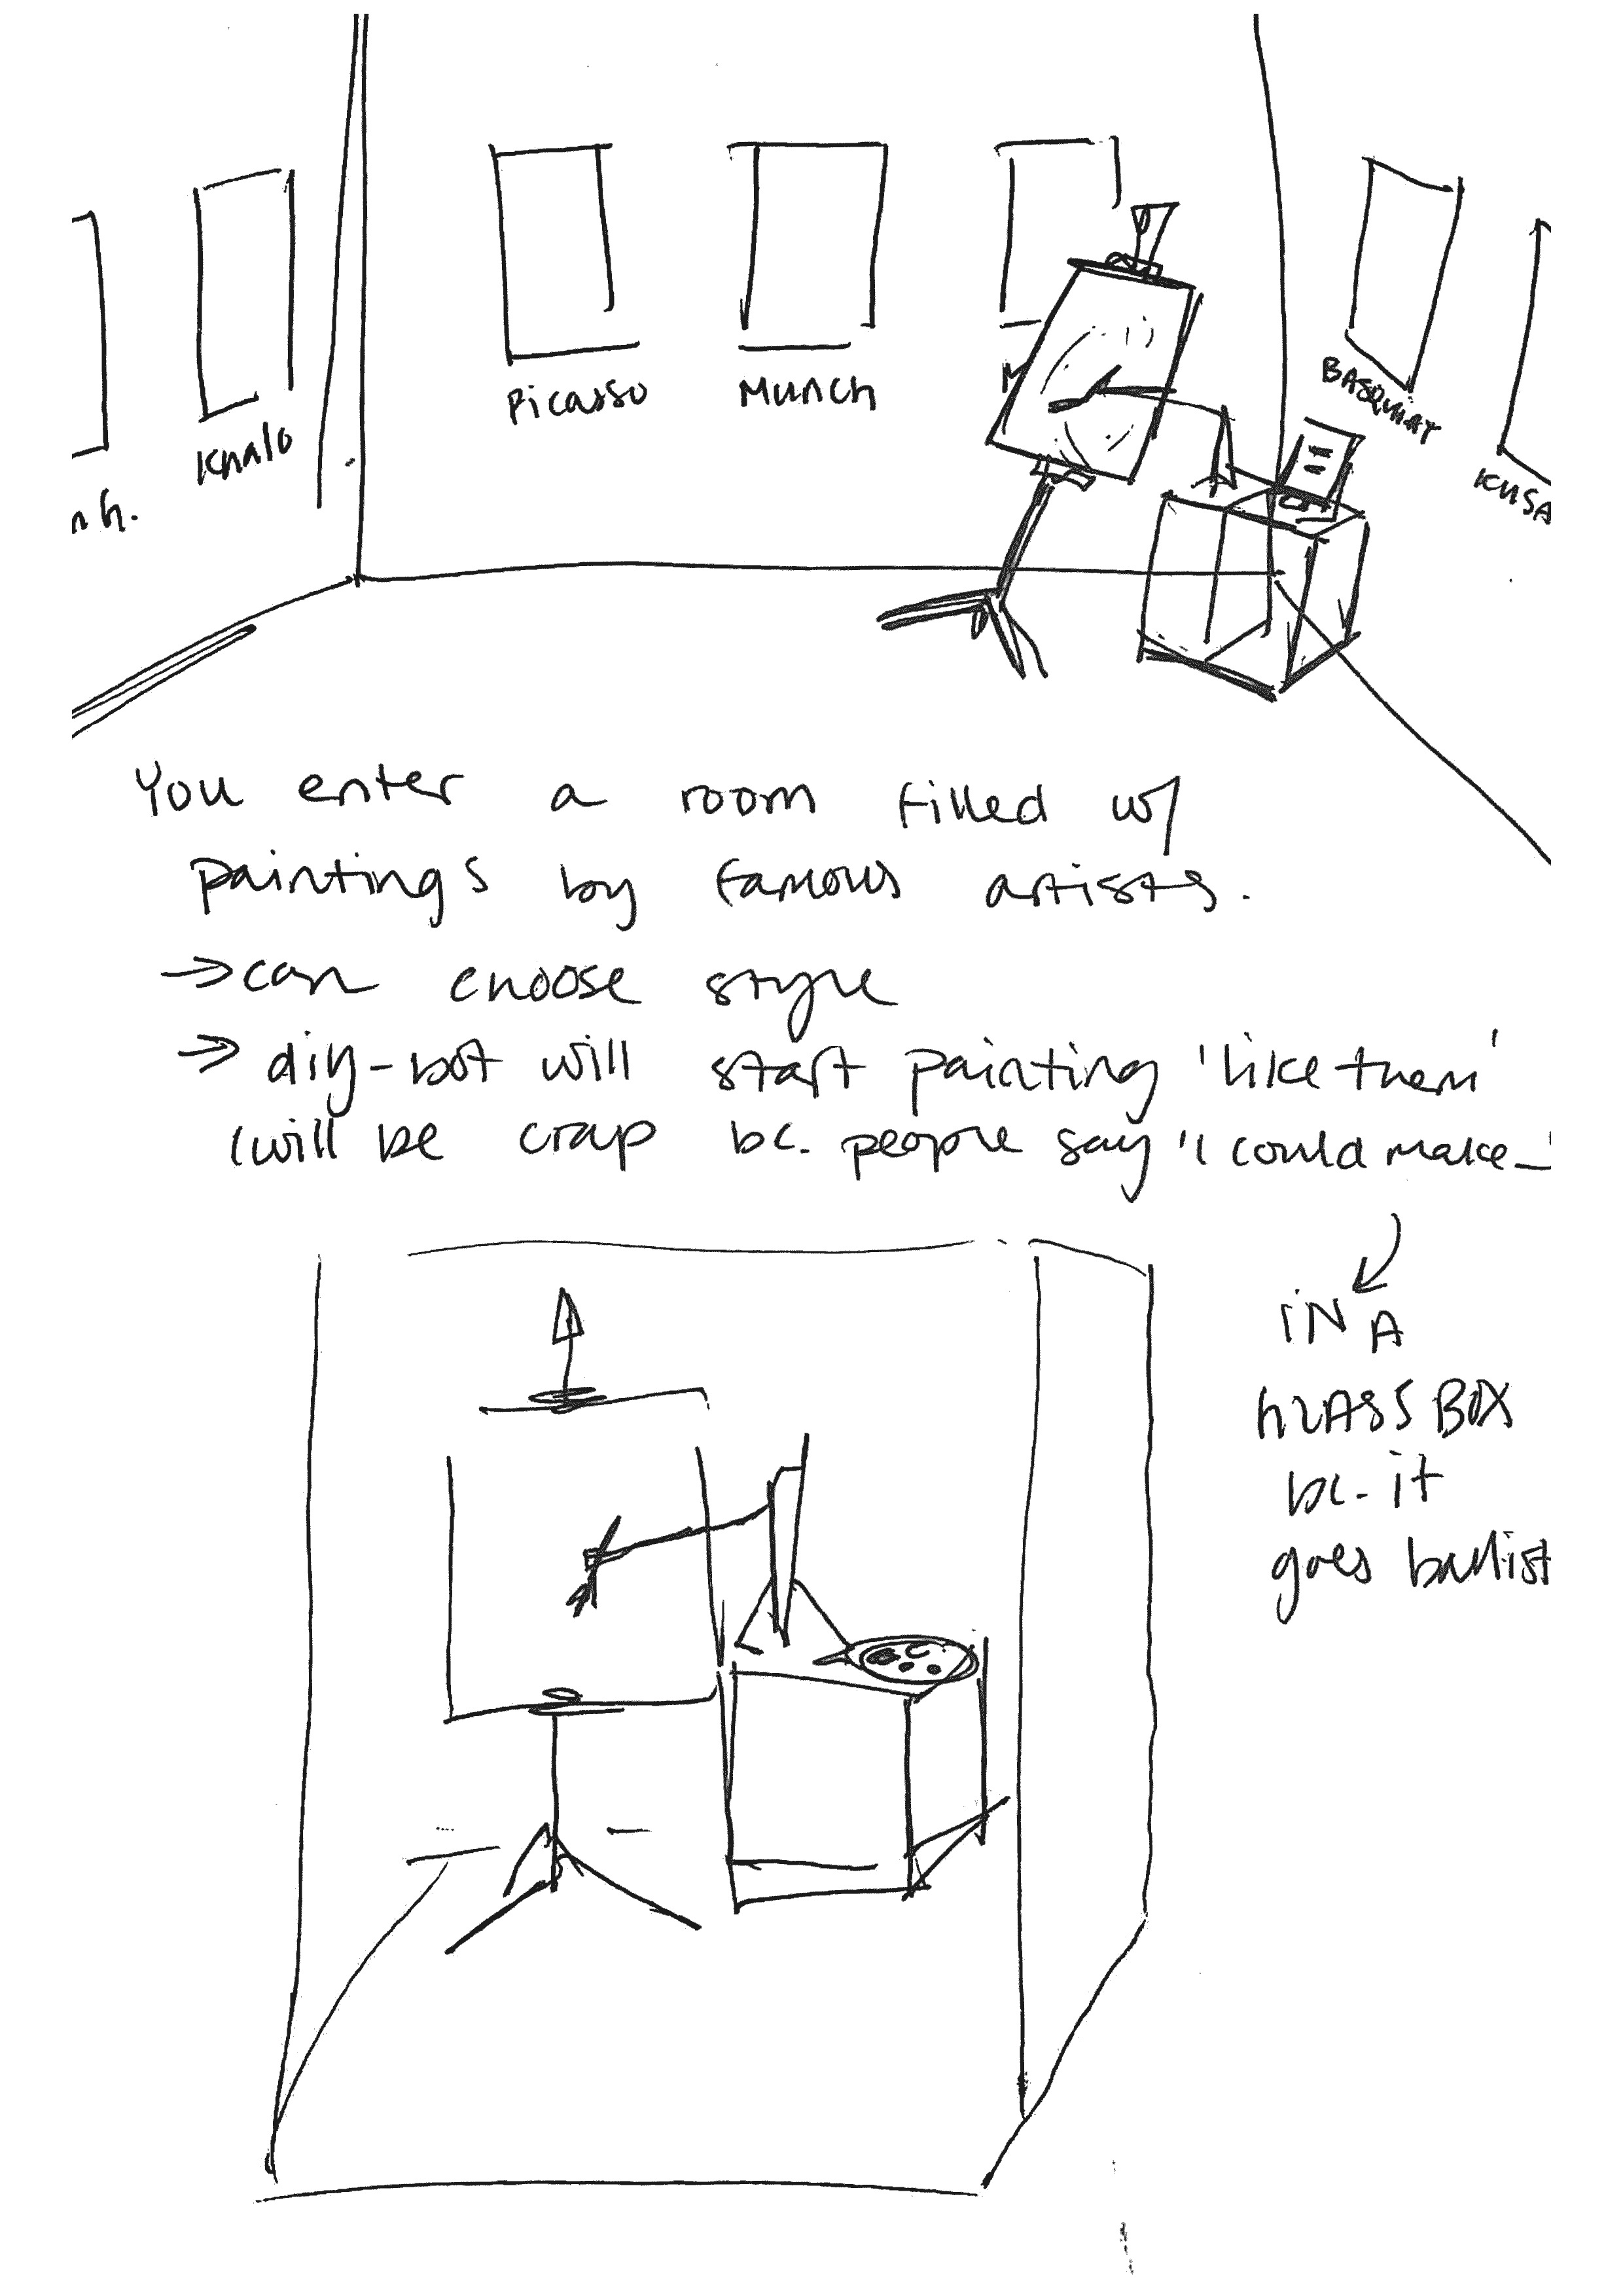 Khalo
Picasso
Munch
M
BASQUIAT
KUSA
nh.
You enter a room filled w/
paintings by famous artists.
→ can choose style
→ diy-bot will start painting 'like them'
(will be crap bc. people say 'I could make_'
iN A
GLASS BOX
bc. it
goes ballist